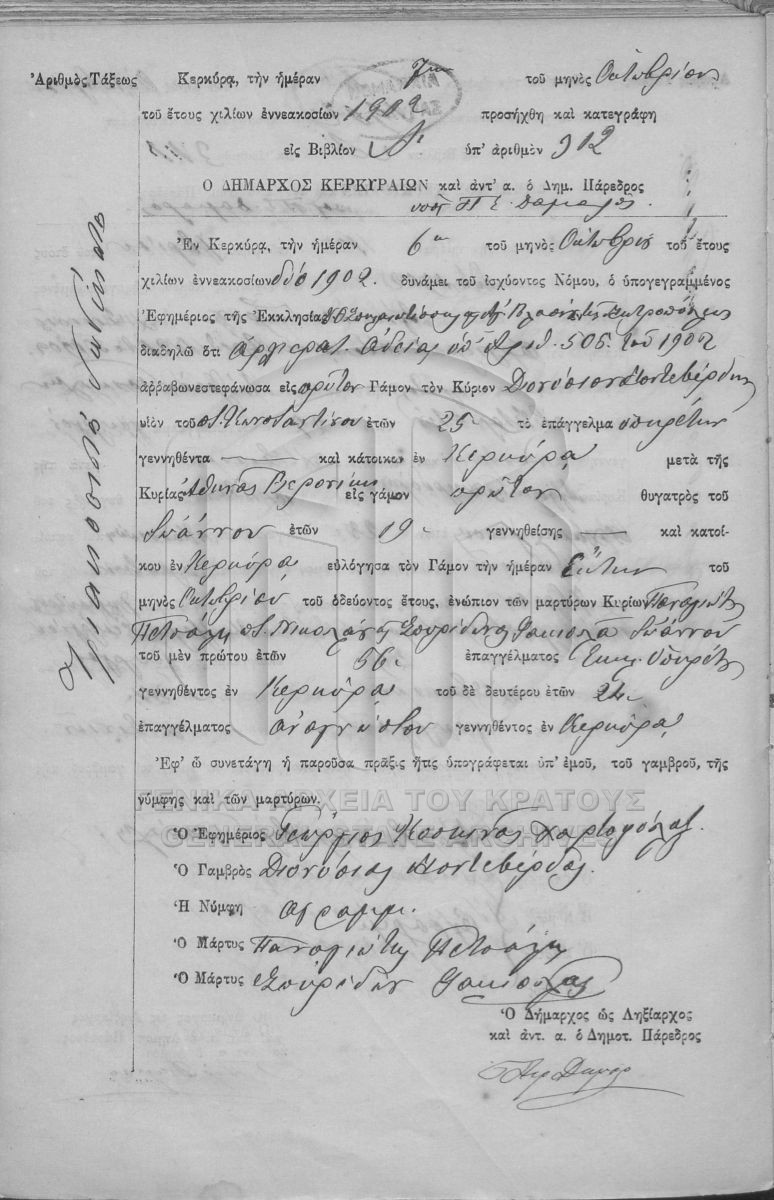 Ἀριθμὸς Τάξεως
Κερκύρᾳ, τὴν ἡμέραν 7ην τοῦ μηνὸς Ὀκτωβρίου
τοῦ ἔτους χιλίων ἐννεακοσίων 1902 προσήχθη καὶ κατεγράφη
εἰς Βιβλίον Α' ὑπ' ἀριθμὸν 312
Ο ΔΗΜΑΡΧΟΣ ΚΕΡΚΥΡΑΙΩΝ καὶ ἀντ' α. ὁ Δημ. Πάρεδρος
Τριακοσιοστὸ Δωδέκατο
Ἐν Κερκύρᾳ, τὴν ἡμέραν 6η τοῦ μηνὸς Ὀκτωβρίου τοῦ ἔτους
χιλίων ἐννεακοσίων δύο 1902. δυνάμει τοῦ ἰσχύοντος Νόμου, ὁ ὑπογεγραμμένος
Ἐφημέριος τῆς Ἐκκλησίας Βλασίου τῆς Μητροπόλεως
διαδηλῶ ὅτι Ἀρχιερατ. Ἀδείας ὑπ' ἀριθ. 505. τοῦ 1902
ἀρραβωνεστεφάνωσα εἰς πρῶτον Γάμον τὸν Κύριον Διονύσιον Μοντεβέρδην
υἱὸν τοῦ π. Κωνσταντίνου ἐτῶν 25 τὸ ἐπάγγελμα ὑπηρέτην
γεννηθέντα — καὶ κάτοικον ἐν Κερκύρᾳ μετὰ τῆς
Κυρίας Ἀθηνᾶς Βερονίκη εἰς γάμον πρῶτον θυγατρὸς τοῦ
Ἰωάννου ἐτῶν 19 γεννηθείσης — καὶ κατοί-
κου ἐν Κερκύρᾳ εὐλόγησα τὸν Γάμον τὴν ἡμέραν Ἕκτην τοῦ
μηνὸς Ὀκτωβρίου τοῦ ὁδεύοντος ἔτους, ἐνώπιον τῶν μαρτύρων Κυρίων Παναγιώτη
Πετσάλη π. Νικολάου Σπυρίδωνος Ἰωάννου
τοῦ μὲν πρώτου ἐτῶν 56 ἐπαγγέλματος Ἐκκλ. Ὑπηρέτη
γεννηθέντος ἐν Κερκύρᾳ τοῦ δὲ δευτέρου ἐτῶν 24
ἐπαγγέλματος ἀναγνώστου γεννηθέντος ἐν Κερκύρᾳ
Ἐφ' ᾧ συνετάγη ἡ παροῦσα πρᾶξις ἥτις ὑπογράφεται ὑπ' ἐμοῦ, τοῦ γαμβροῦ, τῆς
νύμφης καὶ τῶν μαρτύρων.
ΓΕΝΙΚΑ ΑΡΧΕΙΑ ΤΟΥ ΚΡΑΤΟΥΣ
Ὁ Ἐφημέριος Γεώργιος Κοσκινᾶς Χαρτοφύλαξ.
Ὁ Γαμβρὸς Διονύσιος Μοντεβέρδης.
Ἡ Νύμφη ἀγράμμ.
Ὁ Μάρτυς Παναγιώτης Πετσάλη
Ὁ Μάρτυς Σπυρίδων
Ὁ Δήμαρχος ὡς Ληξίαρχος
καὶ ἀντ. α. ὁ Δημοτ. Πάρεδρος